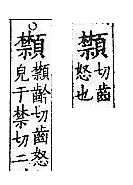 䫴
切齒
怒也
䫴
䫴齘切齒怒
皃于禁切二